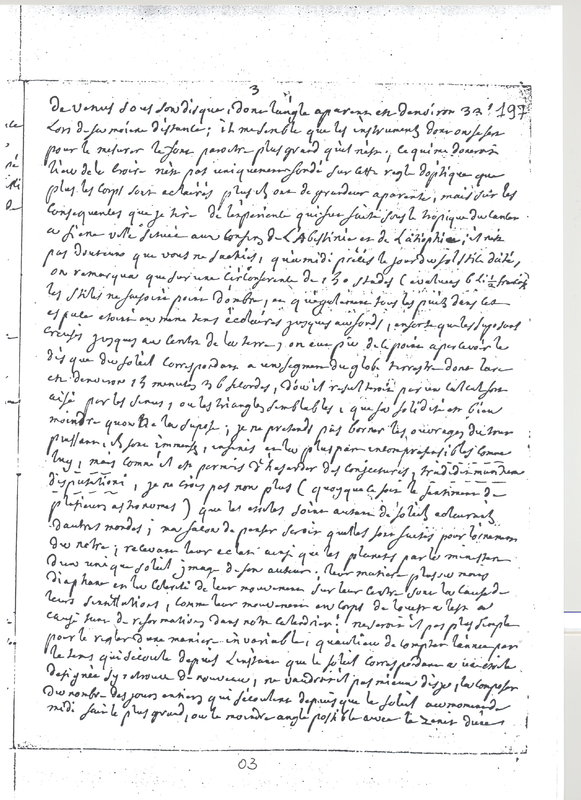 3
197
de venus sous son disque, dont l'angle aparent est denviron 32'
Lors de sa moiene distance; il me semble que les instruments dont on se sert
pour le mesurer le font paroitre plus grand qu'il n'est; ce qui me donneroit
lieu de le croire n'est pas uniquement fondé sur cette regle d'optique que
plus les corps sont eclairés plus ils ont de grandeur aparente, mais sur les
Consequences que je tire de l'experience qui fut faite sous le tropique du Cancer
a siene ville située aux confins de L'Abissinie et de L'Ethiopie; il n'est
pas douteux que vous ne sachiés, qu'a midi précis le jour du solstice d'été,
on remarqua que sur une circonference de 150 stades
les stiles ne faisoient point d'ombre, et qu'egalement tous les puits dans cet
espace etoient en meme tems éclairés jusques au fond, ensorte que les suposant
Creusés jusques au Centre de la terre, on eut pu de la point apercevoir le
disque du soleil correspondant a un segment du globe terrestre dont l'arc
est denviron 15 minutes 36 secondes, d'où il resulteroit par un calcul fort
aisé par les sinus, ou les triangles semblables, que sa solidité est bien
moindre qu'on ne la supose; je ne pretends pas borner les ouvrages du tout
puissant, ils sont immenses, infinis et la plus part incomprehensibles comme
luy, mais comme il est permis d'hasarder des conjectures, tradidit mundum
disputationi, je ne crois pas non plus (quoyque ce soit le sentiment de
plusieurs astronomes) que les etoiles soient autant de soleils
d'autres mondes; ma façon de penser seroit qu'elles sont faites pour l'ornement
du notre; recevant leur eclat ainsi que les planetes par le ministere
d'un unique soleil image de son auteur. leur matiere plus ou moins
Diaphane et la celerité de leur mouvement sur leur Centre sont la Cause de
leurs scintillations, comme leur mouvement en corps de l'ouest a l'est a
causé tant de reformations dans notre Calendrier. ne seroit il pas plus simple
pour le regler d'une maniere invariable, qu'au lieu de compter l'année par
le tems qui s'ecoule depuis L'instant que le soleil correspondant a
designée s'y retrouve de nouveau, ne vaudroit il pas mieux dis je, la composer
du nombre des jours entiers qui s'écoulent depuis que le soleil au moment de
midi fait le plus grand, ou le moindre angle possible avec le zenit d'une
03